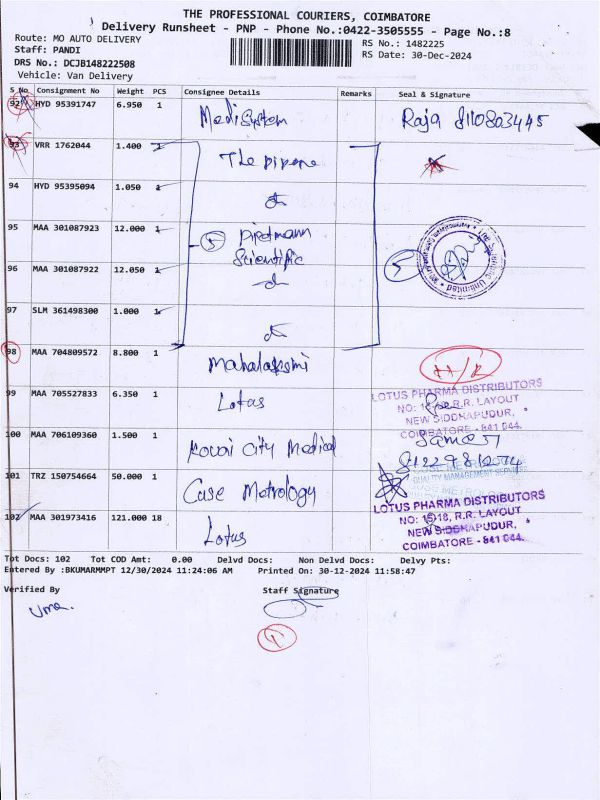 THE PROFESSIONAL COURIERS, COIMBATORE
Delivery Runsheet - PNP - Phone No.:0422-3505555 - Page No.:8
Route: MO AUTO DELIVERY
RS No.: 1482225
Staff: PANDI
RS Date: 30-Dec-2024
DRS No.: DCJB148222508
Vehicle: Van Delivery
S No Consignment No Weight PCS Consignee Details Remarks Seal & Signature
92 HYD 95391747 6.950 1 Medisystem Raja
93 VRR 1762044 1.400 1 The
94 HYD 95395094 1.050 1
95 MAA 301087923 12.000 1 5
Scientific
96 MAA 301087922 12.050 1 5
97 SLM 361498300 1.000 1
98 MAA 704809572 8.800 1 Mahalakshmi
99 MAA 705527833 6.350 1 Lotus
LOTUS PHARMA DISTRIBUTORS
R.R. LAYOUT
NEW SIDDHAPUDUR,
COIMBATORE - 641 044.
100 MAA 706109360 1.500 1 Kovai City Medical
QUALITY MANAGEMENT
101 TRZ 150754664 50.000 1 Case Metrology
102 MAA 301973416 121.000 18 Lotus
LOTUS PHARMA DISTRIBUTORS
NO: 15-18, R.R. LAYOUT
NEW SIDDHAPUDUR,
COIMBATORE - 641 044.
Tot Docs: 102 Tot COD Amt: 0.00 Delvd Docs: Non Delvd Docs: Delvy Pts:
Entered By :BKUMARMMPT 12/30/2024 11:24:06 AM Printed On: 30-12-2024 11:58:47
Verified By Staff Signature
Uma.
1